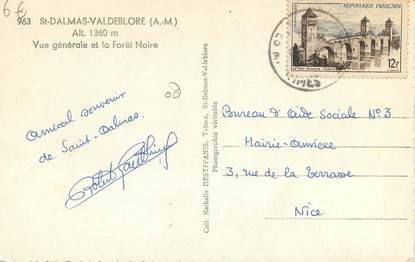 6 €
963 St-DALMAS-VALDEBLORE (A.-M.)
Alt. 1360 m
Vue générale et la Forêt Noire
Amical souvenir
de Saint-Dalmas.
Coll. Nathalie DESTEFANIS, Tabacs, St-Dalmas-Valdeblore
Photographie véritable
RÉPUBLIQUE FRANÇAISE
12F
Bureau d'Aide Sociale N°3
Mairie-Annexe
3, rue de la Terrasse
Nice